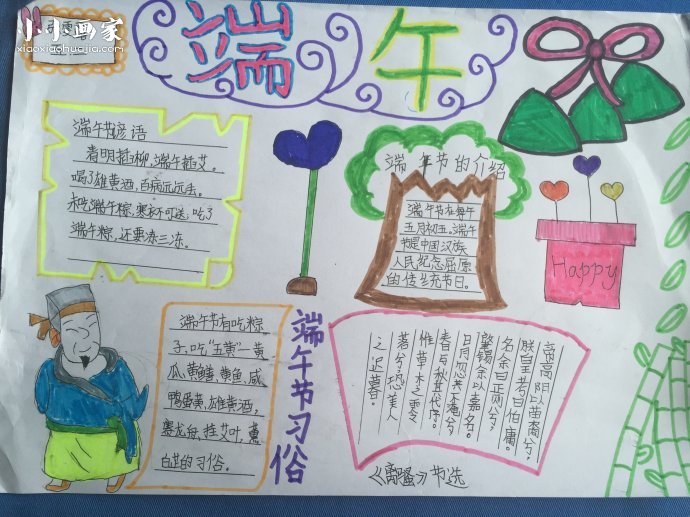 小小画家
xiaoxiaohuajia.com
端午
端午节谚语
青明插柳,端午插艾。
喝了雄黄酒,百病远远去。
未吃端午粽,寒衣不可送,吃了
端午粽,还要冻三冻。
端午节的介绍
端午节在每年
五月初五。端午
节是中国汉族
人民纪念屈原
的传统节日。
Happy
端午节有吃粽
子,吃“五黄”一黄
瓜、黄鳝、黄鱼、咸
鸭蛋黄、雄黄酒,
赛龙舟、挂艾叶、薰
白芷的习俗。
端午节习俗
帝高阳以苗裔兮,
朕皇考曰伯庸。
名余曰正则兮,
肇锡余以嘉名。
日月忽其不淹兮
春与秋其代序。
惟草木之零
落兮,恐美人
之迟暮。
《离骚》节选